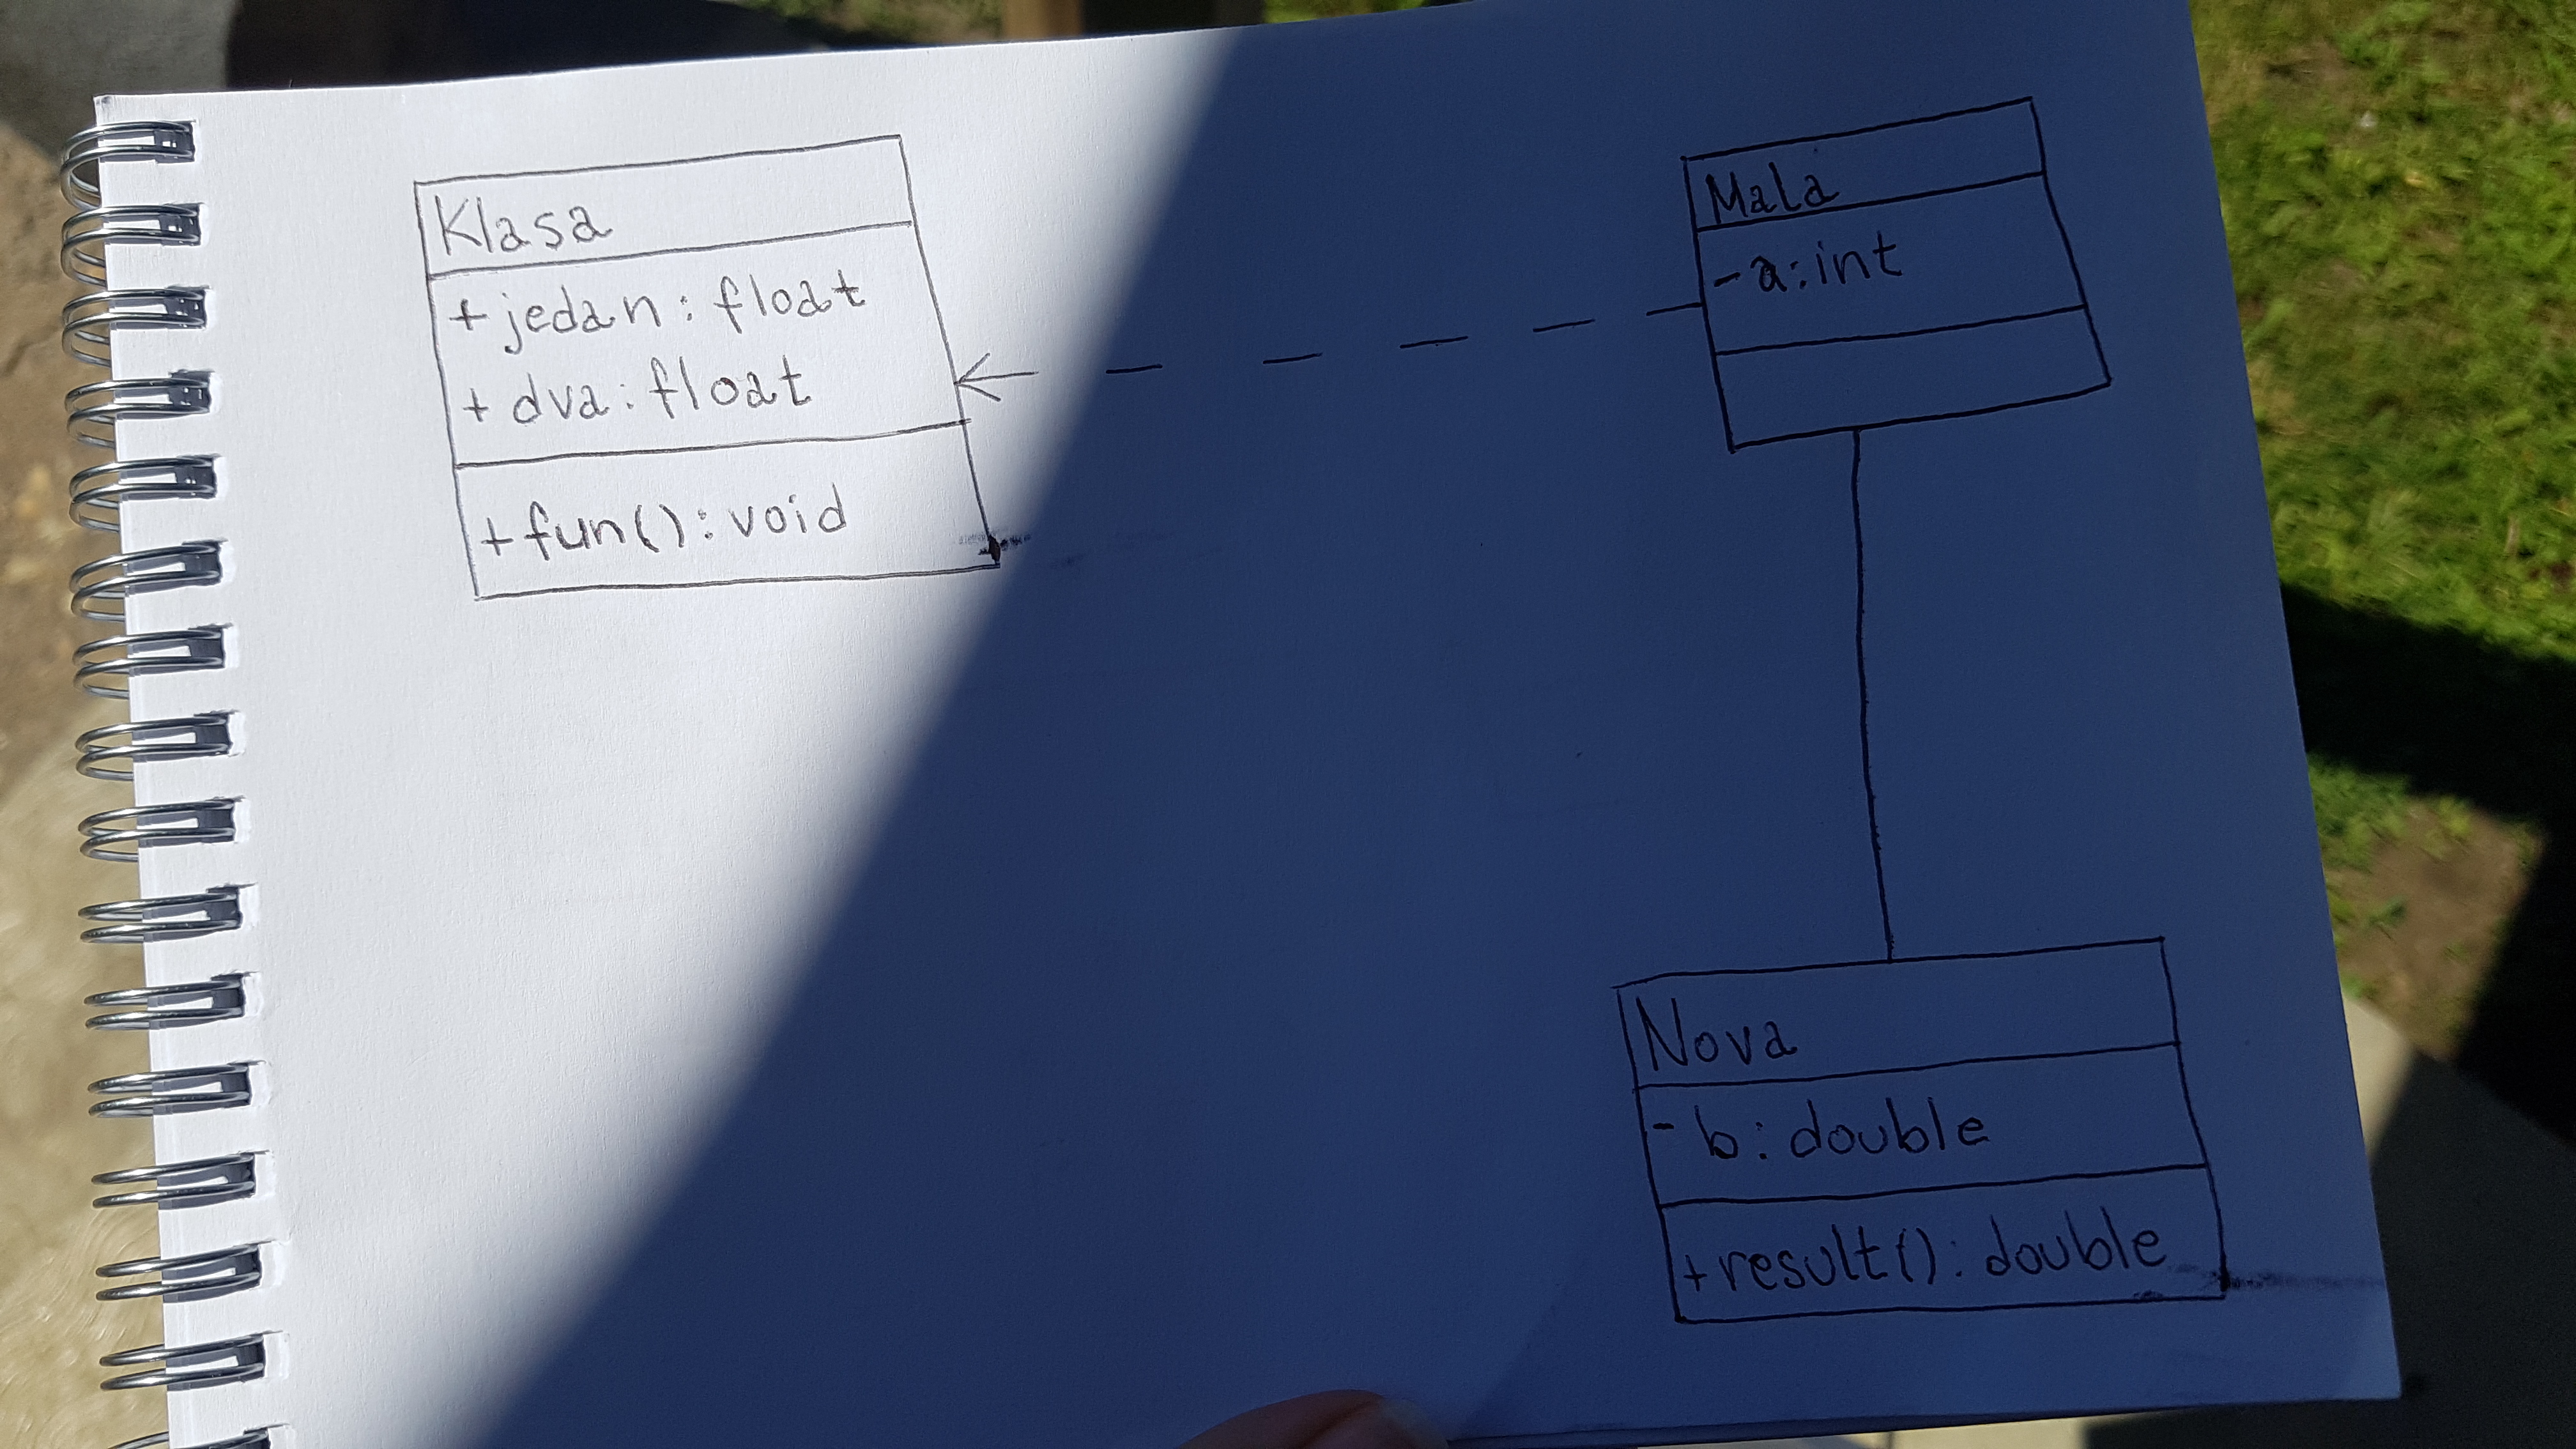 Klasa
+ jedan : float
+ dva : float
+ fun() : void
Mala
- a : int
Nova
- b : double
+ result() : double